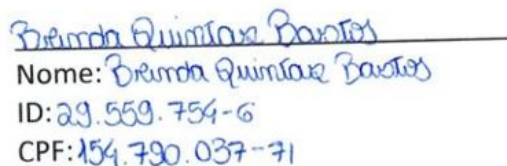 Brenda Quintax Bastos
Nome: Brenda Quintax Bastos
ID: 29.559.754-6
CPF: 154.790.037-71